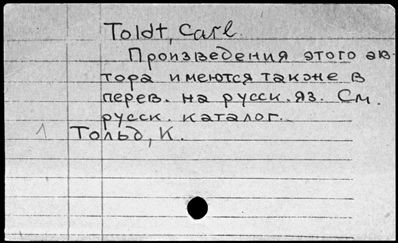 Toldt, Carl
Произведения этого ав-
тора имеются также в
перев. на русск. яз. См.
русск. каталог.
1 Тольд, К.